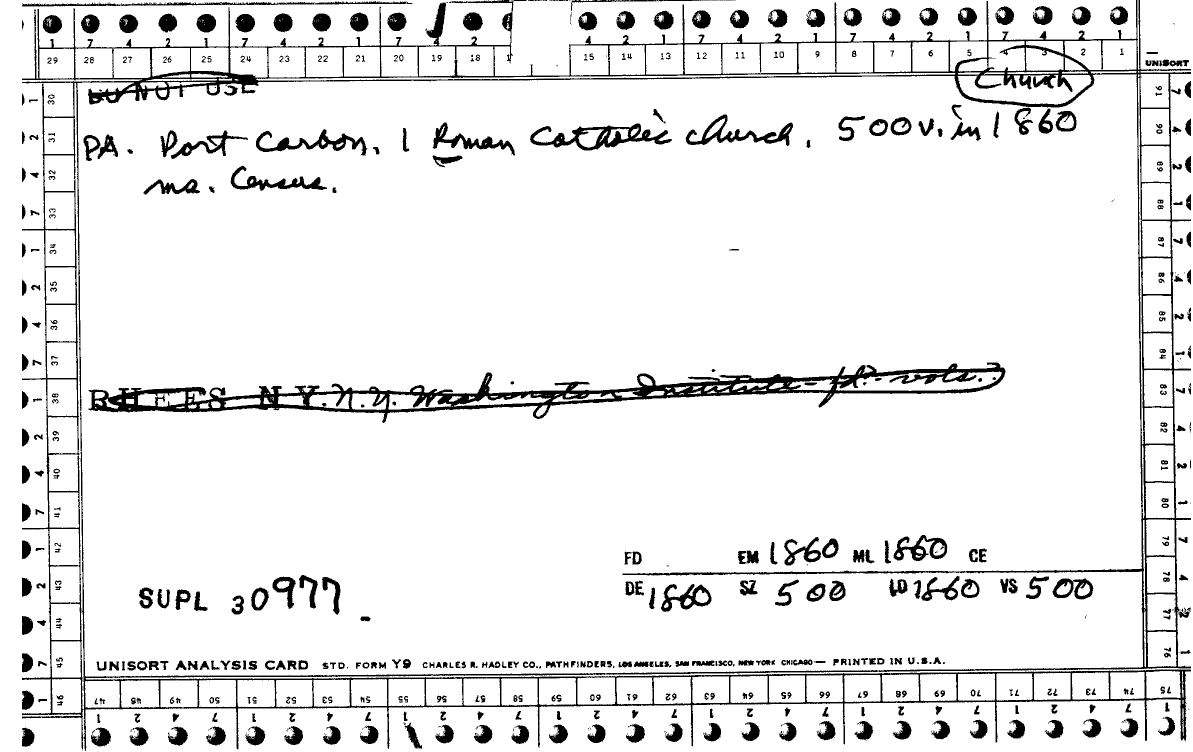 1 7 4 2 1 7 4 2 1 7 4 2 1 4 2 1 7 4 2 1 7 4 2 1 7 4 2 1
29 28 27 26 25 24 23 22 21 20 19 18 1 15 14 13 12 11 10 9 8 7 6 5 4 3 2 1
UNISORT
DO NOT USE
Church
PA. Port Carbon. 1 Roman Catholic church. 500 v. in 1860
ms. Census.
RHEES N.Y. N.Y. Washington Institute - fd? - vols.
FD EM 1860 ML 1860 CE
DE 1860 SZ 500 LD 1860 VS 500
SUPL 30977
UNISORT ANALYSIS CARD STD. FORM Y9 CHARLES R. HADLEY CO., PATHFINDERS, LOS ANGELES, SAN FRANCISCO, NEW YORK CHICAGO — PRINTED IN U.S.A.
47 48 49 50 51 52 53 54 55 56 57 58 59 60 61 62 63 64 65 66 67 68 69 70 71 72 73 74 75
1 2 4 7 1 2 4 7 1 2 4 7 1 2 4 7 1 2 4 7 1 2 4 7 1 2 4 7 1